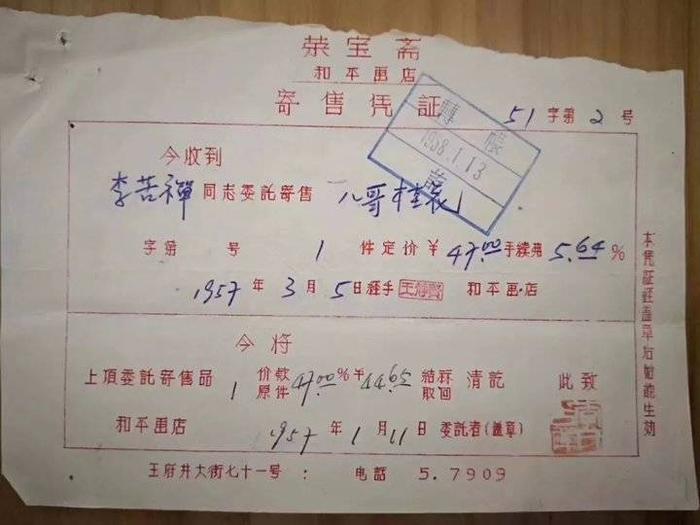 荣宝斋
和平画店
寄售凭証
51字第2号
轉帳
1958.1.13
今收到
李苦禪同志委託寄售八哥
字第 号 1件定价￥47.00手續費5.64%
1957年3月5日經手 和平画店
今将
上頂委託寄售品1价款原件47.00%￥44.65結算取回清訖 此致
和平画店 1957年1月11日委託者(盖章)
王府井大街七十一号： 电話 5.7909
本凭証經盖章后始能生効